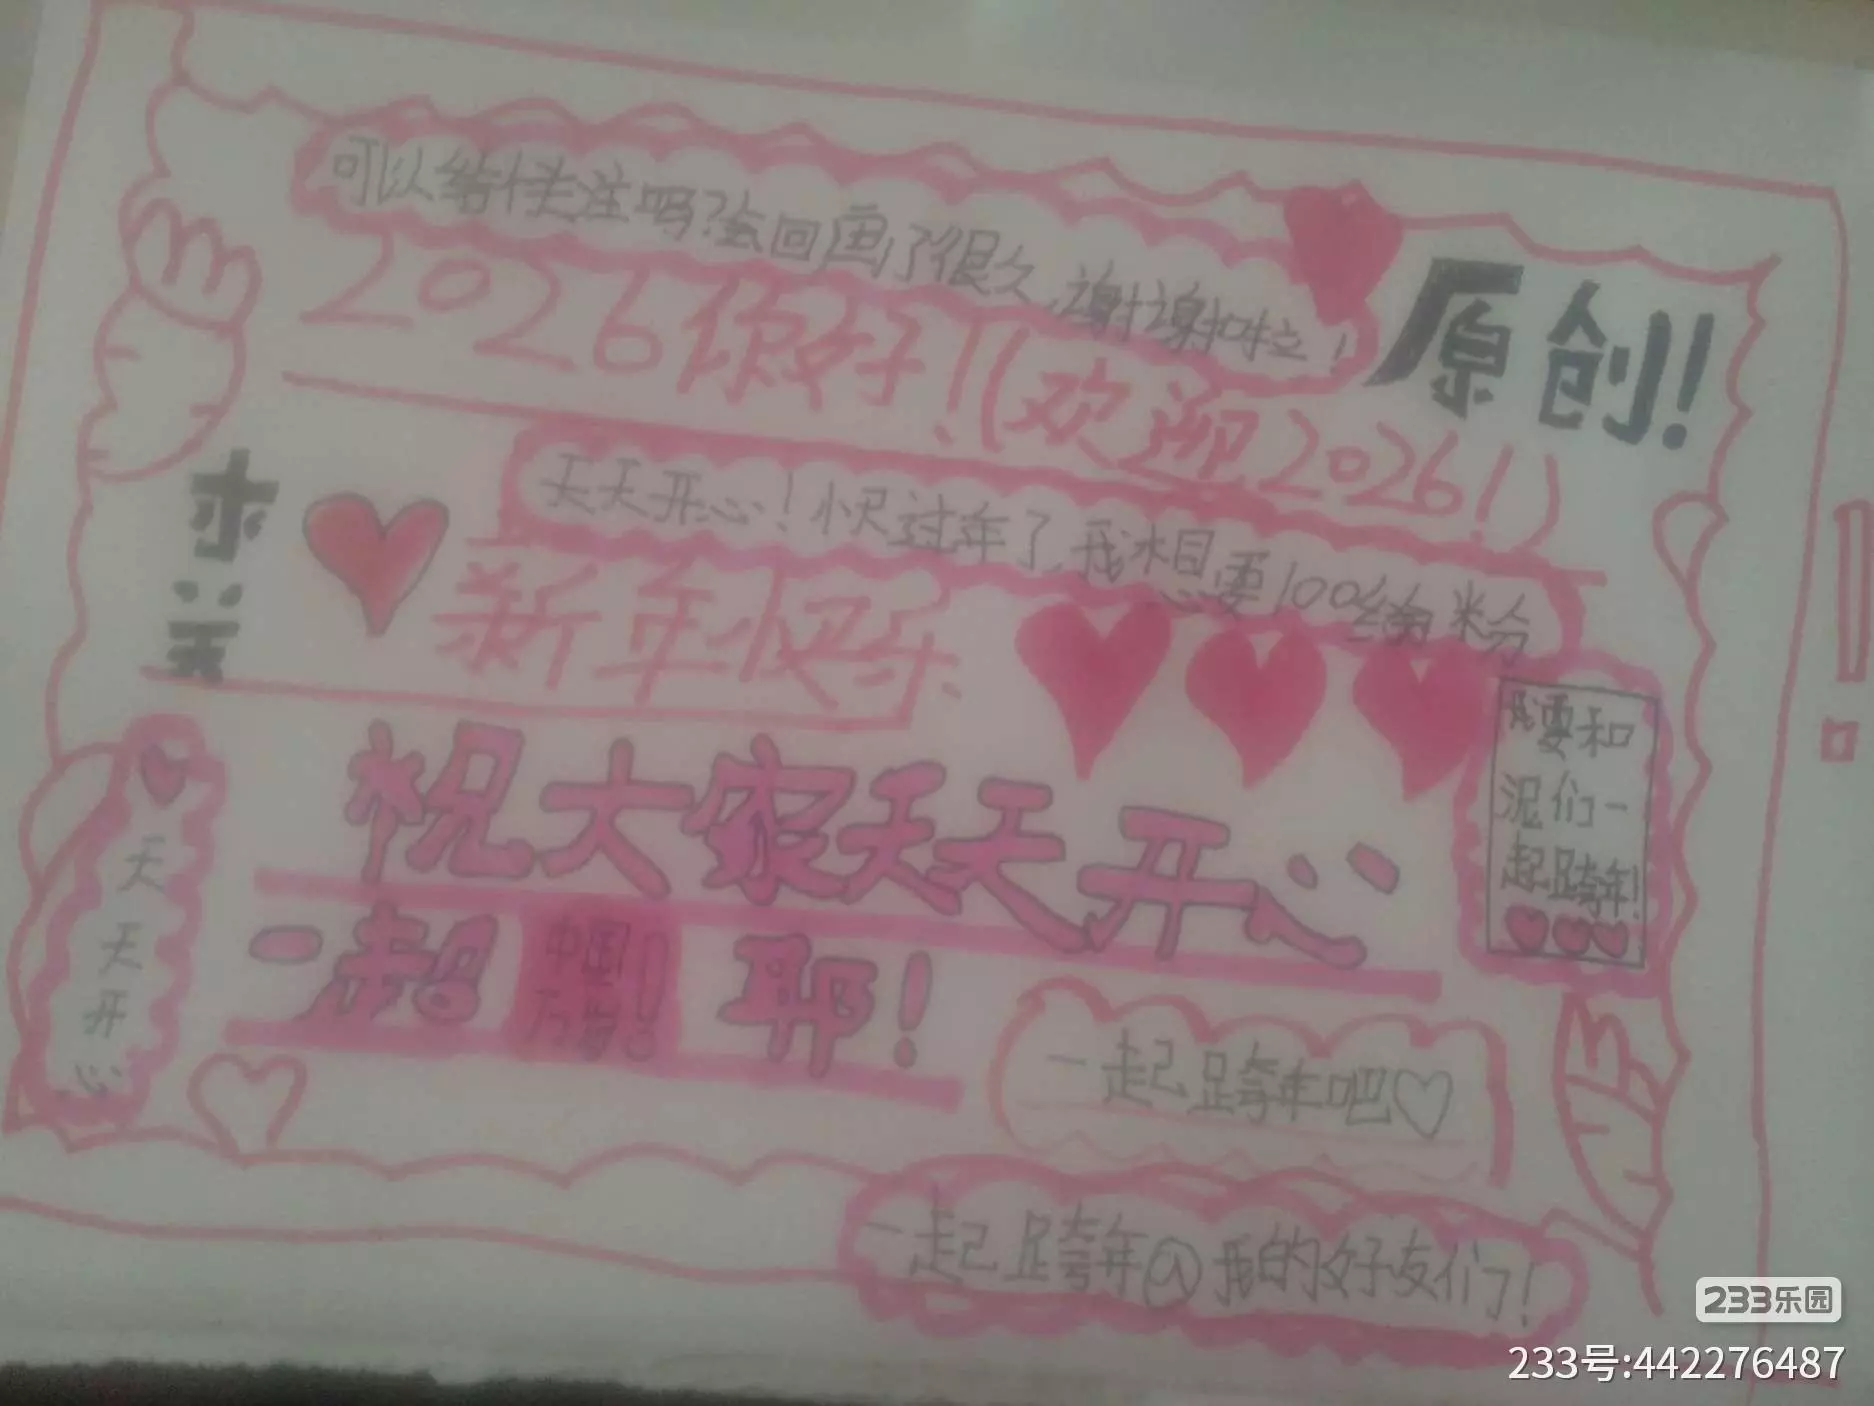 可以给个关注吗?会回画了很久,谢谢啦!
原创!
2026你好!(欢迎2026!)
天天开心!快过年了,我想要100给粉
新年快乐
我要和
泥们一
起跨年!
祝大家天天开心
一起 中国万岁! 耶!
天天开心
一起跨年吧♡
一起跨年@我的好友们!
233乐园
233号:442276487